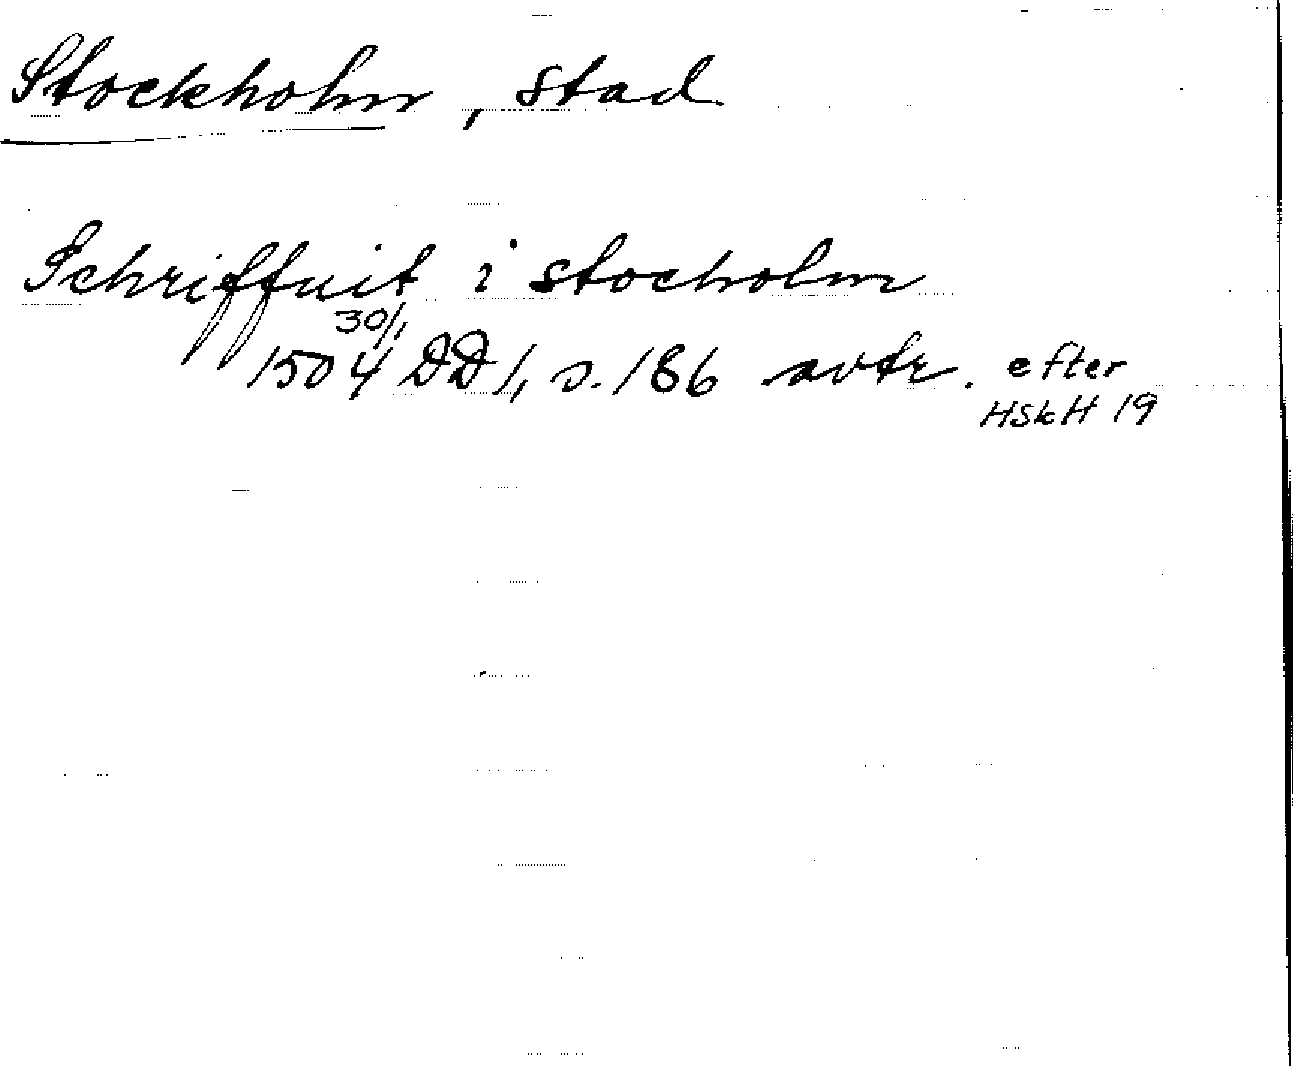 Stockholm, stad
Schriffuit i stocholm
30/1
1504 DD 1, s. 186 avtr. efter
HSkH 19